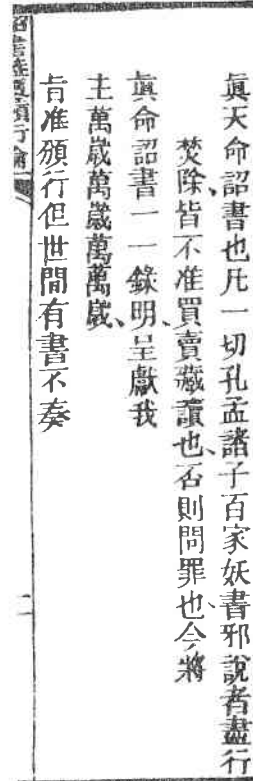 眞天命詔書也凡一切孔孟諸子百家妖書邪說者盡行
焚除、皆不准買賣藏讀也、否則問罪也、今將
眞命詔書一一錄明、呈獻我
主萬歲萬歲萬萬歲、
旨准頒行但世間有書不奏
詔書蓋璽頒行論
二